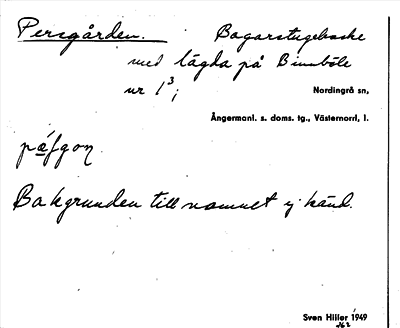 Persgården. Bagarstugebacke
med lägda på Bimböle
nr 1³;
Nordingrå sn,
Ångermanl. s. doms. tg., Västernorrl, l.
Bakgrunden till namnet ej känd.
Sven Hiller 1949